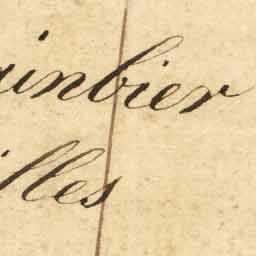 inbier
lles